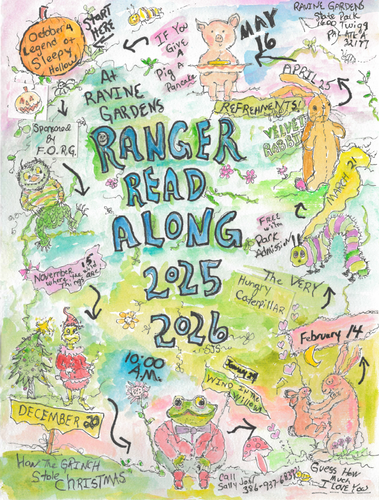 October 4
Legend of
Sleepy
Hollow
START
HERE
IF You
Give
A
Pig A
Pancake
MAY
16
RAVINE GARDENS
State Park
1600 Twigg
PALATKA
32177
At
RAVINE
GARDENS
RANGER
READ
ALONG
2025
2026
10:00
A.M.
REFRESHMENTS!
APRIL 25
VELVETEEN
RABBIT
Sponsored
By
F.O.R.G.
MARCH 21
FREE with
Park
Admission!!
The VERY
Hungry
Caterpillar
November 15
Where the Wild
Things are
February 14
DECEMBER 20
WIND in the
Willows
How the GRINCH
Stole
CHRISTMAS
Call
Sally
Guess How
Much
I LOVE You